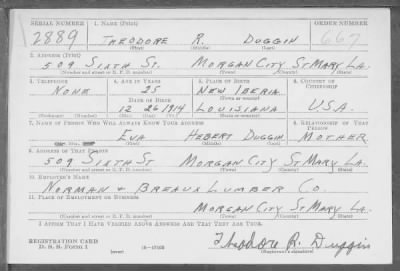 SERIAL NUMBER 1. NAME (Print) ORDER NUMBER
2889 THEODORE R. DUGGIN 667
(First) (Middle) (Last)
2. ADDRESS (Print)
509 SIXTH ST. MORGAN CITY ST MARY LA.
(Number and street or R. F. D. number) (Town) (County) (State)
3. TELEPHONE 4. AGE IN YEARS 5. PLACE OF BIRTH 6. COUNTRY OF CITIZENSHIP
NONE 25 NEW IBERIA
DATE OF BIRTH (Town or county)
12 26 1914 LOUISIANA U.S.A.
(Mo.) (Day) (Yr.) (State or country)
7. NAME OF PERSON WHO WILL ALWAYS KNOW YOUR ADDRESS 8. RELATIONSHIP OF THAT PERSON
EVA HEBERT DUGGIN MOTHER
(First) (Middle) (Last)
9. ADDRESS OF THAT PERSON
509 SIXTH ST. MORGAN CITY ST MARY LA.
(Number and street or R. F. D. number) (Town) (County) (State)
10. EMPLOYER'S NAME
NORMAN & BREAUX LUMBER CO.
11. PLACE OF EMPLOYMENT OR BUSINESS
MORGAN CITY ST MARY LA.
(Number and street or R. F. D. number) (Town) (County) (State)
I AFFIRM THAT I HAVE VERIFIED ABOVE ANSWERS AND THAT THEY ARE TRUE.
REGISTRATION CARD
D. S. S. Form 1 (over) Theodore R. Duggin
(Registrant's signature)